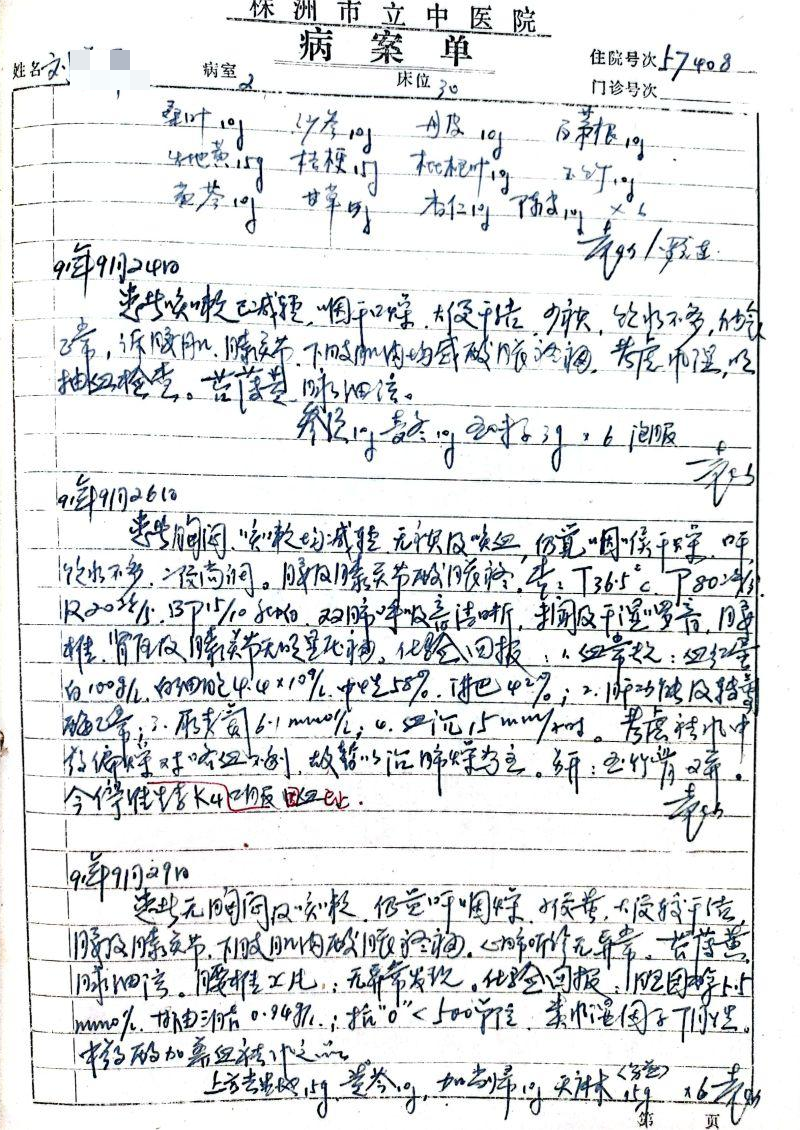 株洲市立中医院
病案单
姓名 病室 2 床位 30 住院号次 57408
门诊号次
桑叶10g 沙参10g 丹皮10g 白茅根10g
生地黄15g 桔梗15g 枇杷叶10g 玉竹10g
黄芩10g 甘草5g 杏仁10g 陈皮10g ×6
91年9月24日
患者咳嗽已减轻,咽干口燥,大便干结,少痰,饮水不多,
正常,诉腰肌、膝关节、下肢肌肉均感酸胀疼痛,考虑风湿,明
抽血检查。苔薄黄,脉细弦。
10g 麦冬10g 五味子3g ×6 泡服
91年9月26日
患者胸闷、咳嗽均减轻,无痰及咳血,仍觉咽喉干燥、口干,
饮水不多,二便尚调。腰及膝关节酸胀疼。查:T36.5℃ P80次/分
R20次/分 BP15/10 双肺呼吸音清晰,未闻及干湿啰音,腰
椎、骨及膝关节无明显。化验回报:1.血常规:血红蛋
白100g/L 白细胞4.4×10⁹/L 中性58% 淋巴42%;2.肝功能及转氨
酶正常;3.尿素氮6.1mmol/L;4.血沉15mm/小时。考虑祛风中
药偏燥对咯血不利,故暂以治肺燥为主。
今停维生素K4口服 因血已止.
91年9月29日
患者无胸闷及咳嗽,仍觉口干咽燥,小便黄,大便较干结,
腰及膝关节、下肢肌肉酸胀疼痛,心肺听诊无异常。苔薄黄,
脉细弦。腰椎X片:无异常发现。化验回报:胆固醇5.5
mmol/L 甘油三脂0.94g/L;抗"O"<500单位,类风湿因子阴性。
中药酌加养血祛风之品
上方去生地15g 黄芩10g,加当归10g 天麻15g ×6
第 页